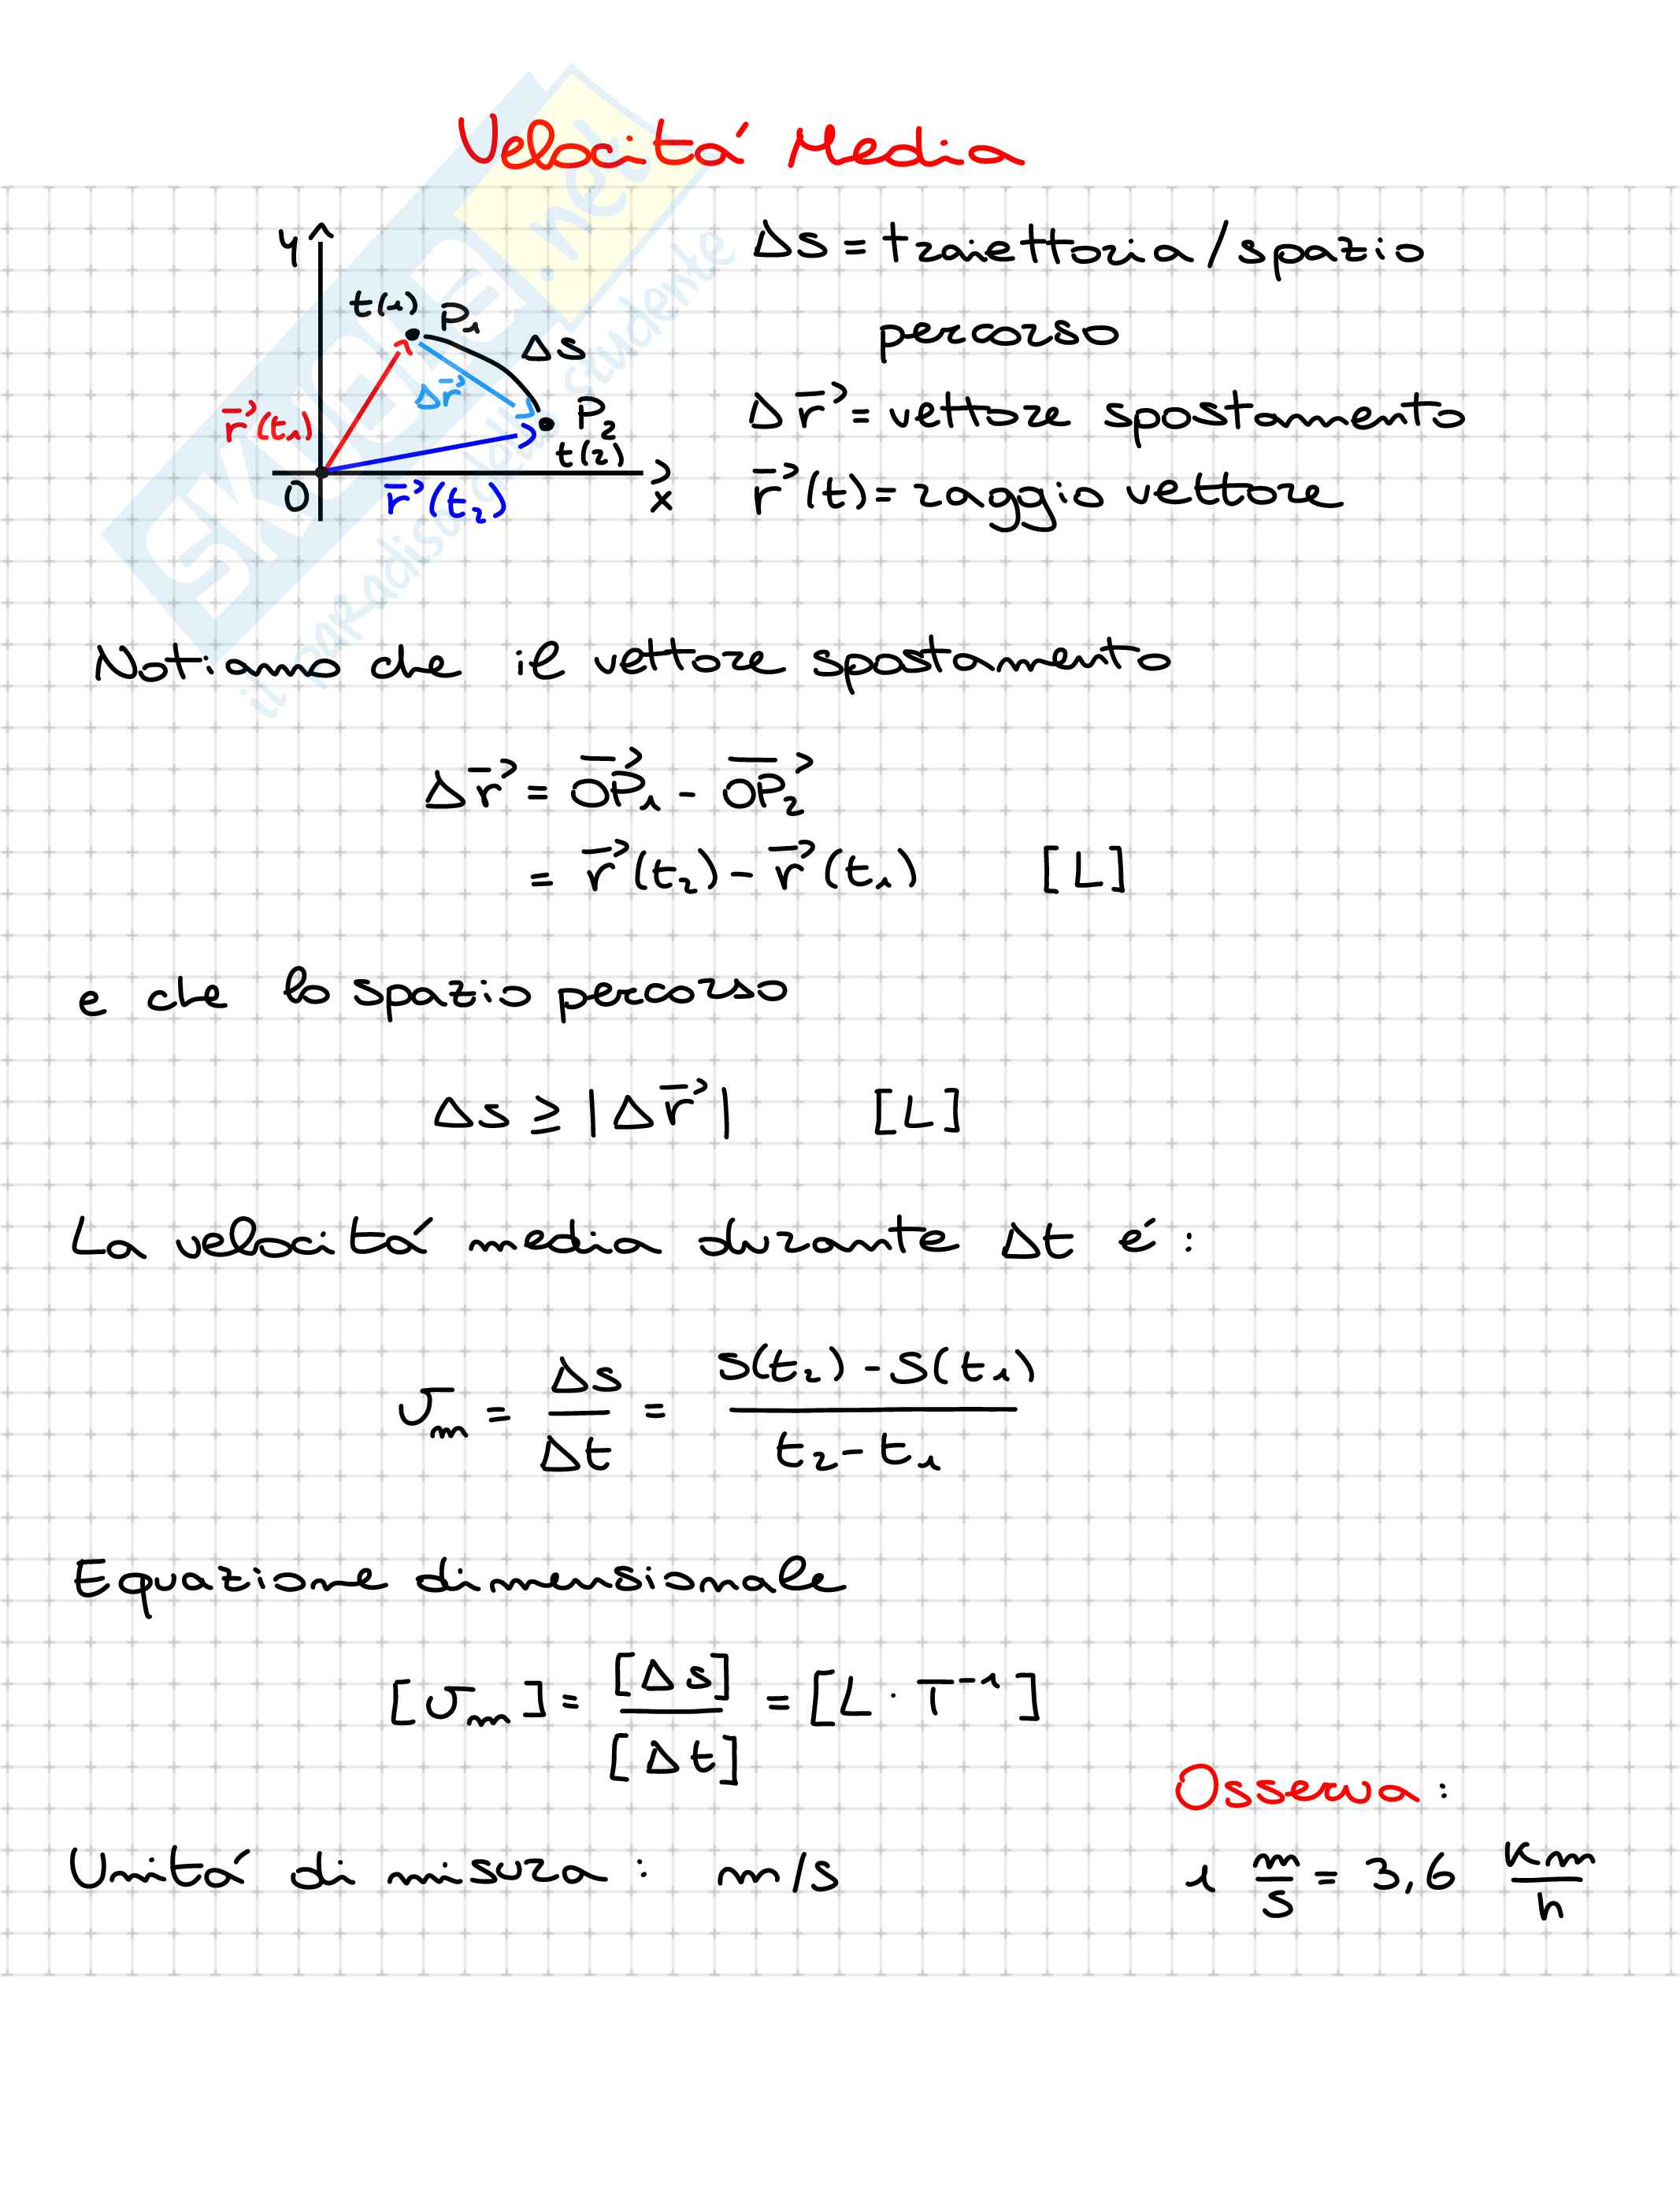 Velocitá Media
y
t(1) P₁
Δs
Δr⃗
r⃗(t₁)
P₂
t(2)
O
r⃗(t₂)
x
Δs = traiettoria / spazio
percorso
Δr⃗ = vettore spostamento
r⃗(t) = raggio vettore
SKUOLA.net
il paradiso dello studente
Notiamo che il vettore spostamento
Δr⃗ = OP⃗₁ - OP⃗₂
= r⃗(t₂) - r⃗(t₁) [L]
e che lo spazio percorso
Δs ≥ |Δr⃗| [L]
La velocitá media durante Δt é:
vₘ = Δs/Δt = (S(t₂) - S(t₁))/(t₂ - t₁)
Equazione dimensionale
[vₘ] = [Δs]/[Δt] = [L · T⁻¹]
Unitá di misura: m/s
Osserva:
1 m/s = 3,6 Km/h